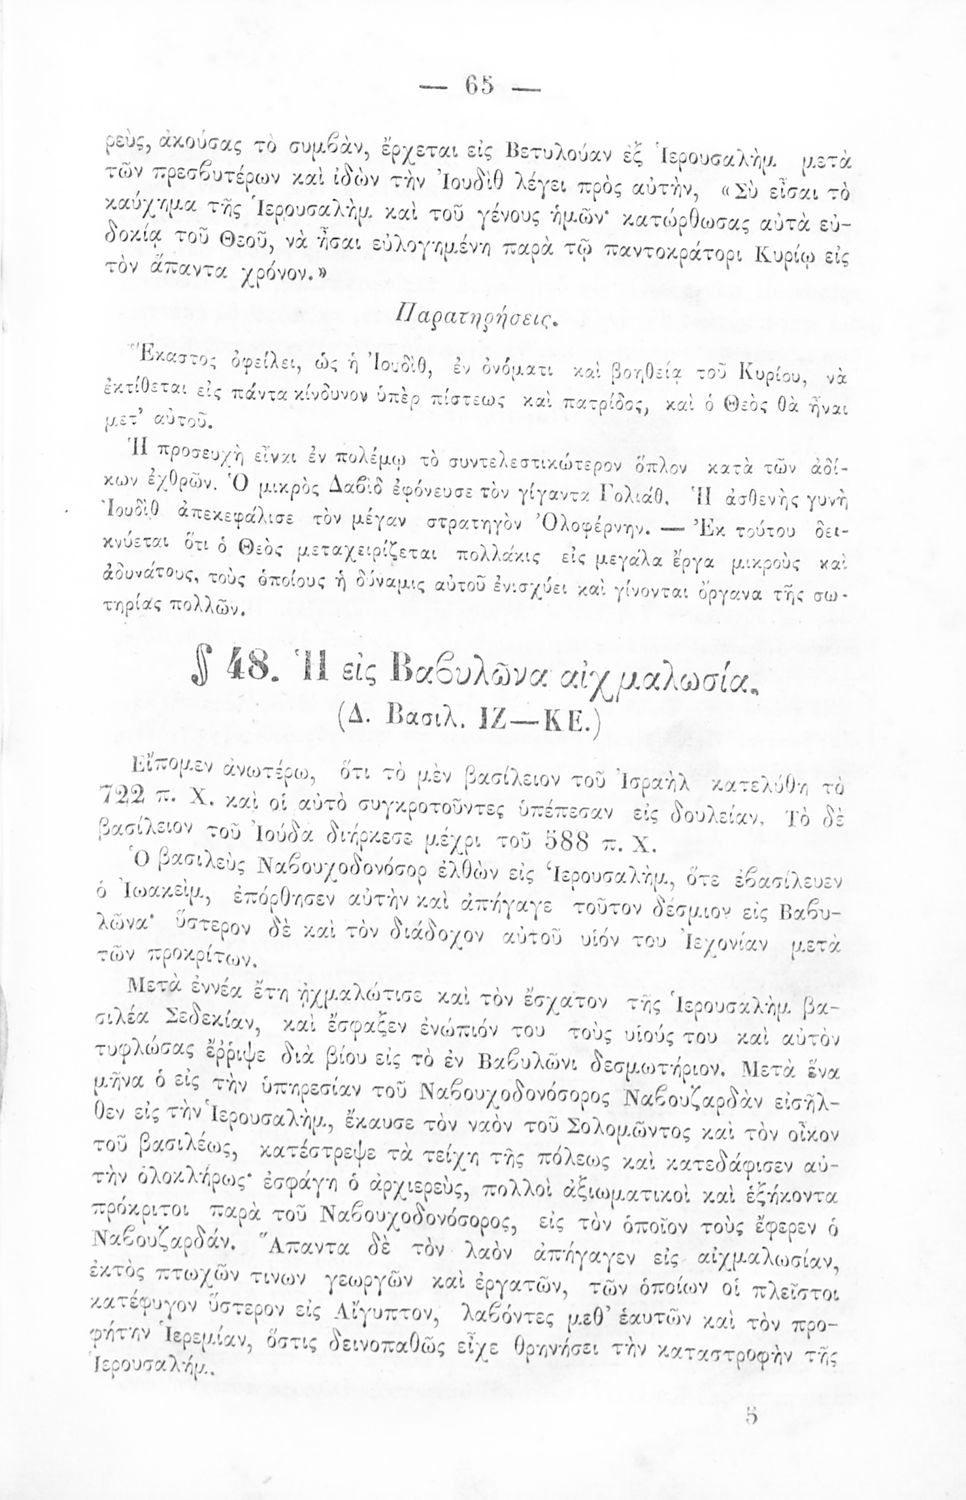 — 65 —
ρεὺς, ἀκούσας τὸ συμβὰν, ἔρχεται εἰς Βετυλούαν ἐξ Ἱερουσαλὴμ μετὰ
τῶν πρεσβυτέρων καὶ ἰδὼν τὴν Ἰουδὶθ λέγει πρὸς αὐτὴν, «Σὺ εἶσαι τὸ
καύχημα τῆς Ἱερουσαλὴμ καὶ τοῦ γένους ἡμῶν· κατώρθωσας αὐτὰ εὐ-
δοκίᾳ τοῦ Θεοῦ, νὰ ἦσαι εὐλογημένη παρὰ τῷ παντοκράτορι Κυρίῳ εἰς
τὸν ἅπαντα χρόνον.»
Παρατηρήσεις.
Ἕκαστος ὀφείλει, ὡς ἡ Ἰουδὶθ, ἐν ὀνόματι καὶ βοηθείᾳ τοῦ Κυρίου, νὰ
ἐκτίθεται εἰς πάντα κίνδυνον ὑπὲρ πίστεως καὶ πατρίδος, καὶ ὁ Θεὸς θὰ ἦναι
μετ’ αὐτοῦ.
Ἡ προσευχὴ εἶναι ἐν πολέμῳ τὸ συντελεστικώτερον ὅπλον κατὰ τῶν ἀδί-
κων ἐχθρῶν. Ὁ μικρὸς Δαβὶδ ἐφόνευσε τὸν γίγαντα Γολιάθ. Ἡ ἀσθενὴς γυνὴ
Ἰουδὶθ ἀπεκεφάλισε τὸν μέγαν στρατηγὸν Ὀλοφέρνην. — Ἐκ τούτου δει-
κνύεται ὅτι ὁ Θεὸς μεταχειρίζεται πολλάκις εἰς μεγάλα ἔργα μικροὺς καὶ
ἀδυνάτους, τοὺς ὁποίους ἡ δύναμις αὐτοῦ ἐνισχύει καὶ γίνονται ὄργανα τῆς σω-
τηρίας πολλῶν.
§ 48. Ἡ εἰς Βαβυλῶνα αἰχμαλωσία.
(Δ. Βασιλ. ΙΖ—ΚΕ.)
Εἴπομεν ἀνωτέρω, ὅτι τὸ μὲν βασίλειον τοῦ Ἰσραὴλ κατελύθη τὸ
722 π. Χ. καὶ οἱ αὐτὸ συγκροτοῦντες ὑπέπεσαν εἰς δουλείαν. Τὸ δὲ
βασίλειον τοῦ Ἰούδα διήρκεσε μέχρι τοῦ 588 π. Χ.
Ὁ βασιλεὺς Ναβουχοδονόσορ ἐλθὼν εἰς Ἱερουσαλὴμ, ὅτε ἐβασίλευεν
ὁ Ἰωακεὶμ, ἐπόρθησεν αὐτὴν καὶ ἀπήγαγε τοῦτον δέσμιον εἰς Βαβυ-
λῶνα· ὕστερον δὲ καὶ τὸν διάδοχον αὐτοῦ υἱόν του Ἰεχονίαν μετὰ
τῶν προκρίτων.
Μετὰ ἐννέα ἔτη ᾐχμαλώτισε καὶ τὸν ἔσχατον τῆς Ἱερουσαλὴμ βα-
σιλέα Σεδεκίαν, καὶ ἔσφαξεν ἐνώπιόν του τοὺς υἱούς του καὶ αὐτὸν
τυφλώσας ἔῤῥιψε διὰ βίου εἰς τὸ ἐν Βαβυλῶνι δεσμωτήριον. Μετὰ ἕνα
μῆνα ὁ εἰς τὴν ὑπηρεσίαν τοῦ Ναβουχοδονόσορος Ναβουζαρδὰν εἰσῆλ-
θεν εἰς τὴν Ἱερουσαλὴμ, ἔκαυσε τὸν ναὸν τοῦ Σολομῶντος καὶ τὸν οἶκον
τοῦ βασιλέως, κατέστρεψε τὰ τείχη τῆς πόλεως καὶ κατεδάφισεν αὐ-
τὴν ὁλοκλήρως· ἐσφάγη ὁ ἀρχιερεὺς, πολλοὶ ἀξιωματικοὶ καὶ ἑξήκοντα
πρόκριτοι παρὰ τοῦ Ναβουχοδονόσορος, εἰς τὸν ὁποῖον τοὺς ἔφερεν ὁ
Ναβουζαρδάν. Ἅπαντα δὲ τὸν λαὸν ἀπήγαγεν εἰς αἰχμαλωσίαν,
ἐκτὸς πτωχῶν τινων γεωργῶν καὶ ἐργατῶν, τῶν ὁποίων οἱ πλεῖστοι
κατέφυγον ὕστερον εἰς Αἴγυπτον, λαβόντες μεθ’ ἑαυτῶν καὶ τὸν προ-
φήτην Ἱερεμίαν, ὅστις δεινοπαθῶς εἶχε θρηνήσει τὴν καταστροφὴν τῆς
Ἱερουσαλήμ.
5